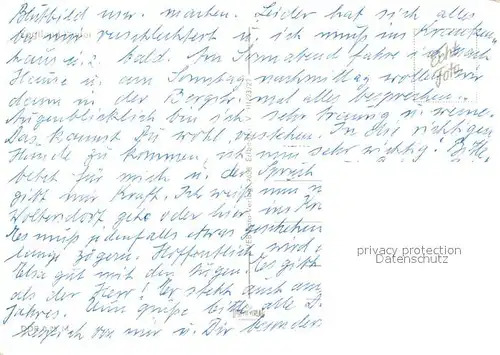 Blutbild usw. machen. Leider hat sich alles
bei mir verschlechtert u. ich muß ins Kranken-
haus u. z. bald. Am Sonnabend fahre ich nach
Hause u. am Sonntag nachmittag wollen wir
dann in der Bergstr. mal alles besprechen.
Augenblicklich bin ich sehr traurig u. weine.
Das kannst Du wohl verstehen. In die richtigen
Hände zu kommen, ist nun sehr wichtig! Bitte,
betet für mich u. der Spruch
gibt mir Kraft. Ich weiß nun n
Woltersdorf gehe oder hier ins Kr
Es muß jedenfalls etwas geschehen
lange zögern. Hoffentlich wird
Elsa gut mit den Augen. Es gibt
als der Herr! Er steht auch am
Jahres. Nun grüße bitte alle
herzlich von mir u. Dir besonders
Echt
Foto
privacy protection
Datenschutz